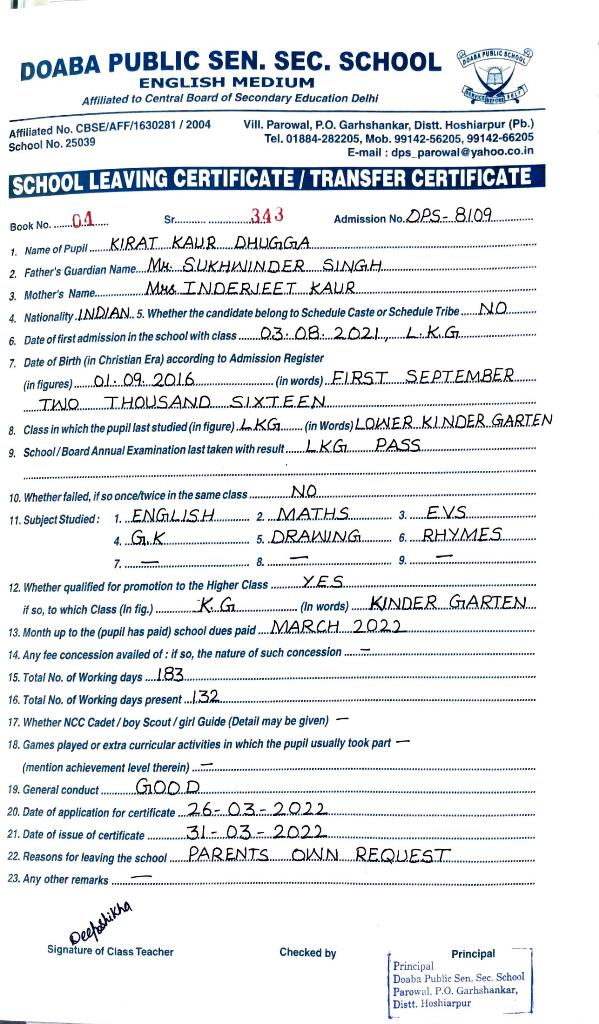 DOABA PUBLIC SEN. SEC. SCHOOL
ENGLISH MEDIUM
Affiliated to Central Board of Secondary Education Delhi
DOABA PUBLIC SCHOOL
SERVICE BEFORE SELF
Affiliated No. CBSE/AFF/1630281 / 2004
School No. 25039
Vill. Parowal, P.O. Garhshankar, Distt. Hoshiarpur (Pb.)
Tel. 01884-282205, Mob. 99142-56205, 99142-66205
E-mail : dps_parowal@yahoo.co.in
SCHOOL LEAVING CERTIFICATE / TRANSFER CERTIFICATE
Book No. 04 Sr. 343 Admission No. DPS-8109
1. Name of Pupil KIRAT KAUR DHUGGA
2. Father's Guardian Name Mr. SUKHWINDER SINGH
3. Mother's Name Mrs INDERJEET KAUR
4. Nationality INDIAN 5. Whether the candidate belong to Schedule Caste or Schedule Tribe NO
6. Date of first admission in the school with class 03.08.2021, L.K.G
7. Date of Birth (in Christian Era) according to Admission Register
(in figures) 01.09.2016 (in words) FIRST SEPTEMBER
TWO THOUSAND SIXTEEN
8. Class in which the pupil last studied (in figure) LKG (in Words) LOWER KINDER GARTEN
9. School / Board Annual Examination last taken with result LKG PASS
10. Whether failed, if so once/twice in the same class NO
11. Subject Studied : 1. ENGLISH 2. MATHS 3. EVS
4. G.K 5. DRAWING 6. RHYMES
7. — 8. — 9. —
12. Whether qualified for promotion to the Higher Class YES
if so, to which Class (In fig.) K.G (In words) KINDER GARTEN
13. Month up to the (pupil has paid) school dues paid MARCH 2022
14. Any fee concession availed of : if so, the nature of such concession —
15. Total No. of Working days 183
16. Total No. of Working days present 132
17. Whether NCC Cadet / boy Scout / girl Guide (Detail may be given) —
18. Games played or extra curricular activities in which the pupil usually took part —
(mention achievement level therein) —
19. General conduct GOOD
20. Date of application for certificate 26-03-2022
21. Date of issue of certificate 31-03-2022
22. Reasons for leaving the school PARENTS OWN REQUEST
23. Any other remarks —
Deepshikha
Signature of Class Teacher Checked by Principal
Principal
Doaba Public Sen. Sec. School
Parowal, P.O. Garhshankar,
Distt. Hoshiarpur